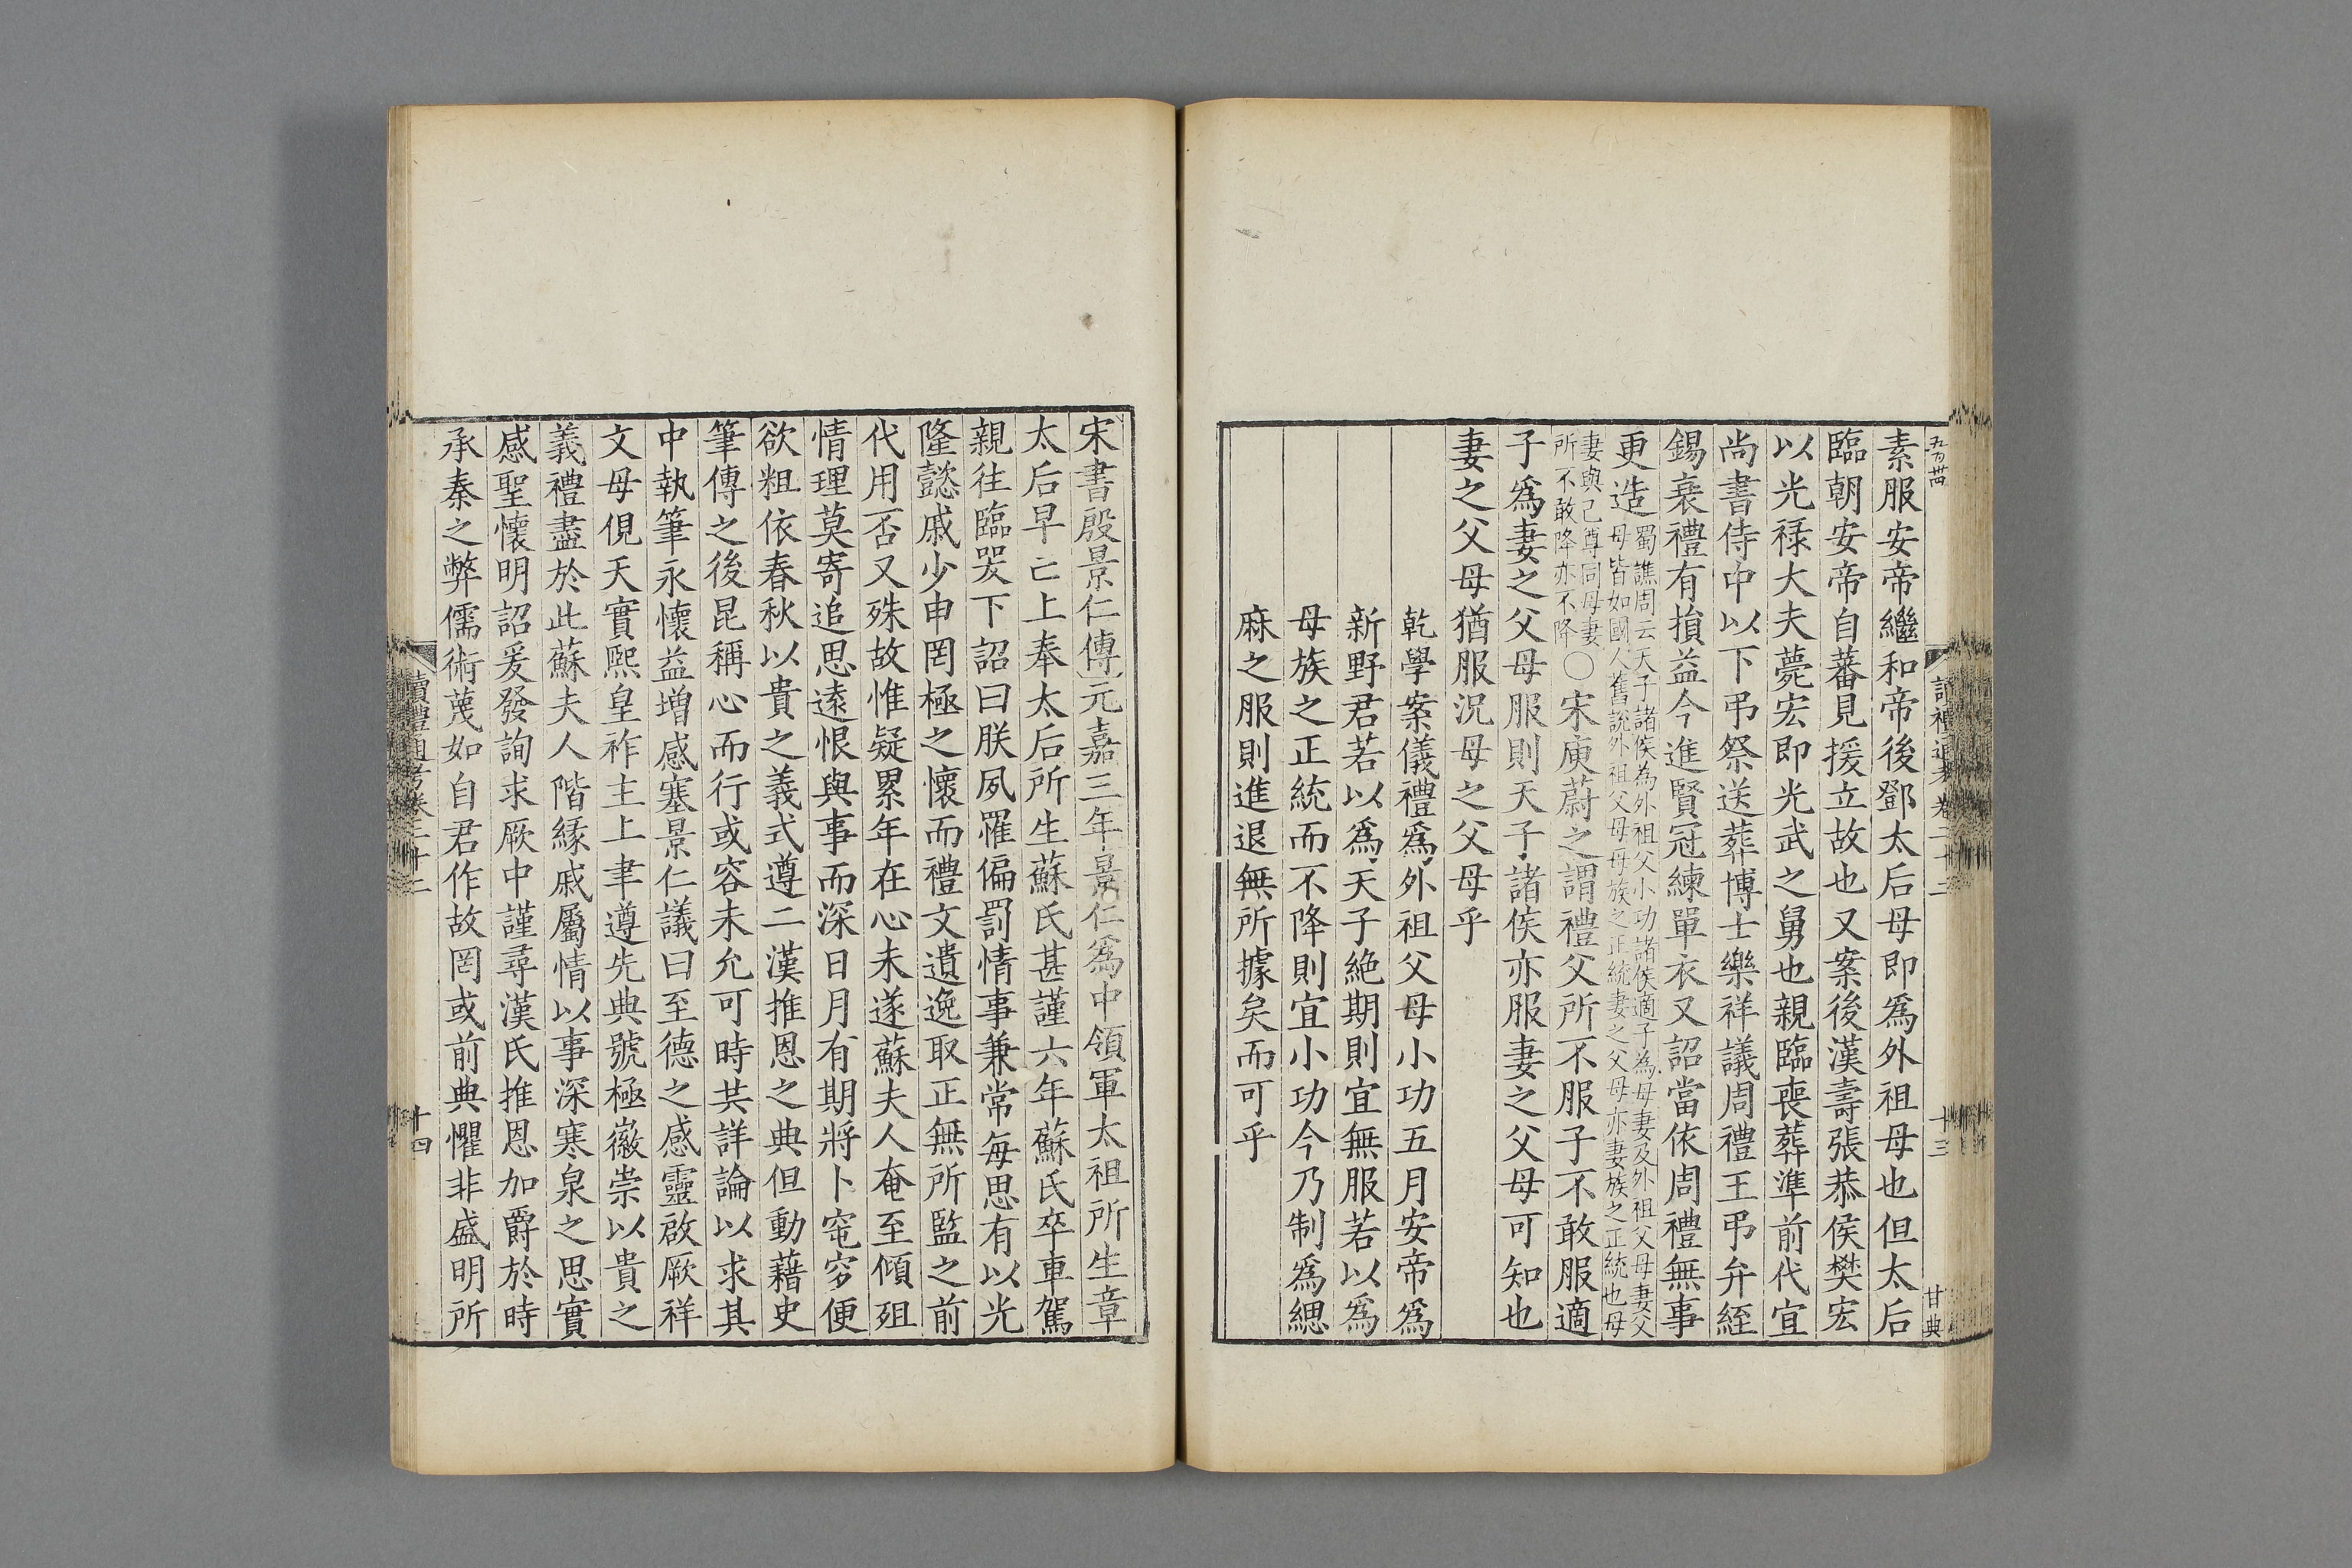 五百卅四
讀禮通考卷二十二
十三
甘典
素服安帝繼和帝後鄧太后母即爲外祖母也但太后
臨朝安帝自蕃見援立故也又案後漢壽張恭侯樊宏
以光祿大夫薨宏即光武之舅也親臨喪葬準前代宜
尚書侍中以下弔祭送葬博士樂祥議周禮王弔弁絰
錫衰禮有損益今進賢冠練單衣又詔當依周禮無事
更造
蜀譙周云天子諸侯為外祖父小功諸侯適子為母妻及外祖父母妻父
母皆如國人舊說外祖父母母族之正統妻之父母亦妻族之正統也母
妻與己尊同母妻
所不敢降亦不降
○宋庾蔚之謂禮父所不服子不敢服適
子爲妻之父母服則天子諸侯亦服妻之父母可知也
妻之父母猶服況母之父母乎
乾學案儀禮爲外祖父母小功五月安帝爲
新野君若以爲天子絶期則宜無服若以爲
母族之正統而不降則宜小功今乃制爲緦
麻之服則進退無所據矣而可乎
宋書殷景仁傳元嘉三年景仁爲中領軍太祖所生章
太后早亡上奉太后所生蘇氏甚謹六年蘇氏卒車駕
親往臨哭下詔曰朕夙罹偏罰情事兼常每思有以光
隆懿戚少申罔極之懷而禮文遺逸取正無所監之前
代用否又殊故惟疑累年在心未遂蘇夫人奄至傾殂
情理莫寄追思遠恨與事而深日月有期將卜窀穸便
欲粗依春秋以貴之義式遵二漢推恩之典但動藉史
筆傳之後昆稱心而行或容未允可時共詳論以求其
中執筆永懷益增感塞景仁議曰至德之感靈啟厥祥
文母俔天實熙皇祚主上聿遵先典號極徽崇以貴之
義禮盡於此蘇夫人階緣戚屬情以事深寒泉之思實
感聖懷明詔爰發詢求厥中謹尋漢氏推恩加爵於時
承秦之弊儒術蔑如自君作故罔或前典懼非盛明所
讀禮通考卷二十二
十四